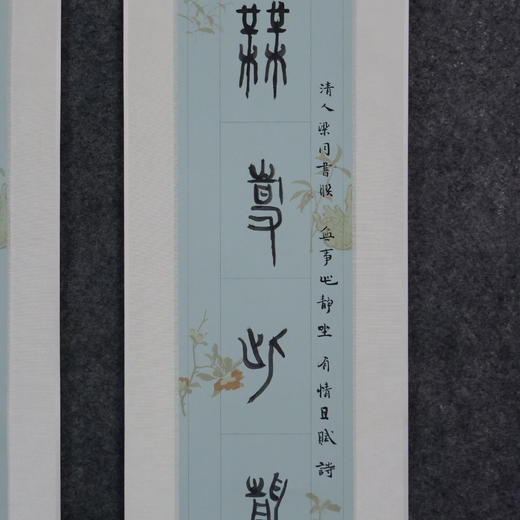 清人梁同書聯 無事此靜坐 有情且賦詩
無事此